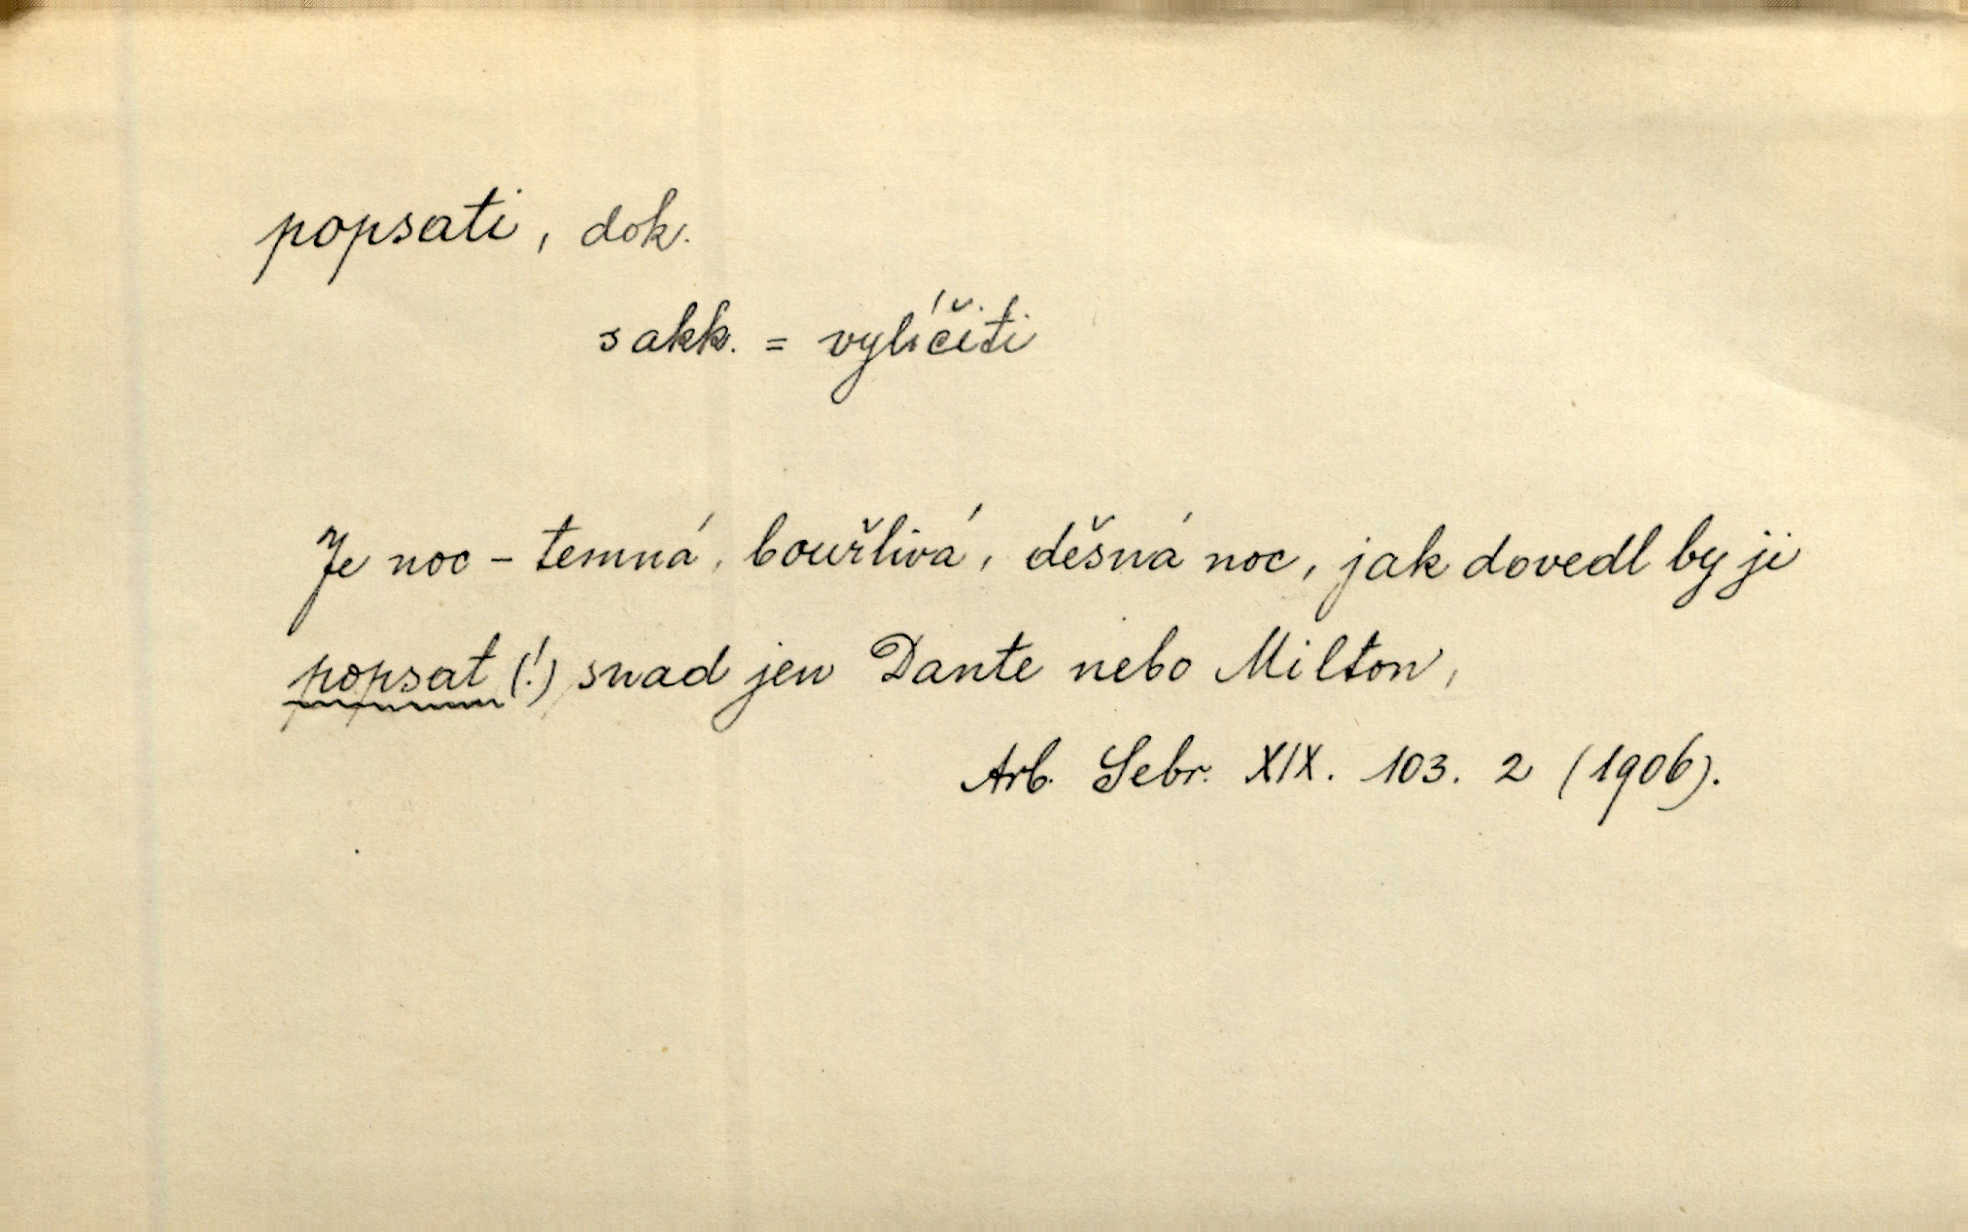 popsati, dok.
s akk. = vylíčiti
Je noc – temná, bouřlivá, děsná noc, jak dovedl by ji
popsat (!) snad jen Dante nebo Milton,
Arb. Sebr. XIX. 103. 2 (1906).